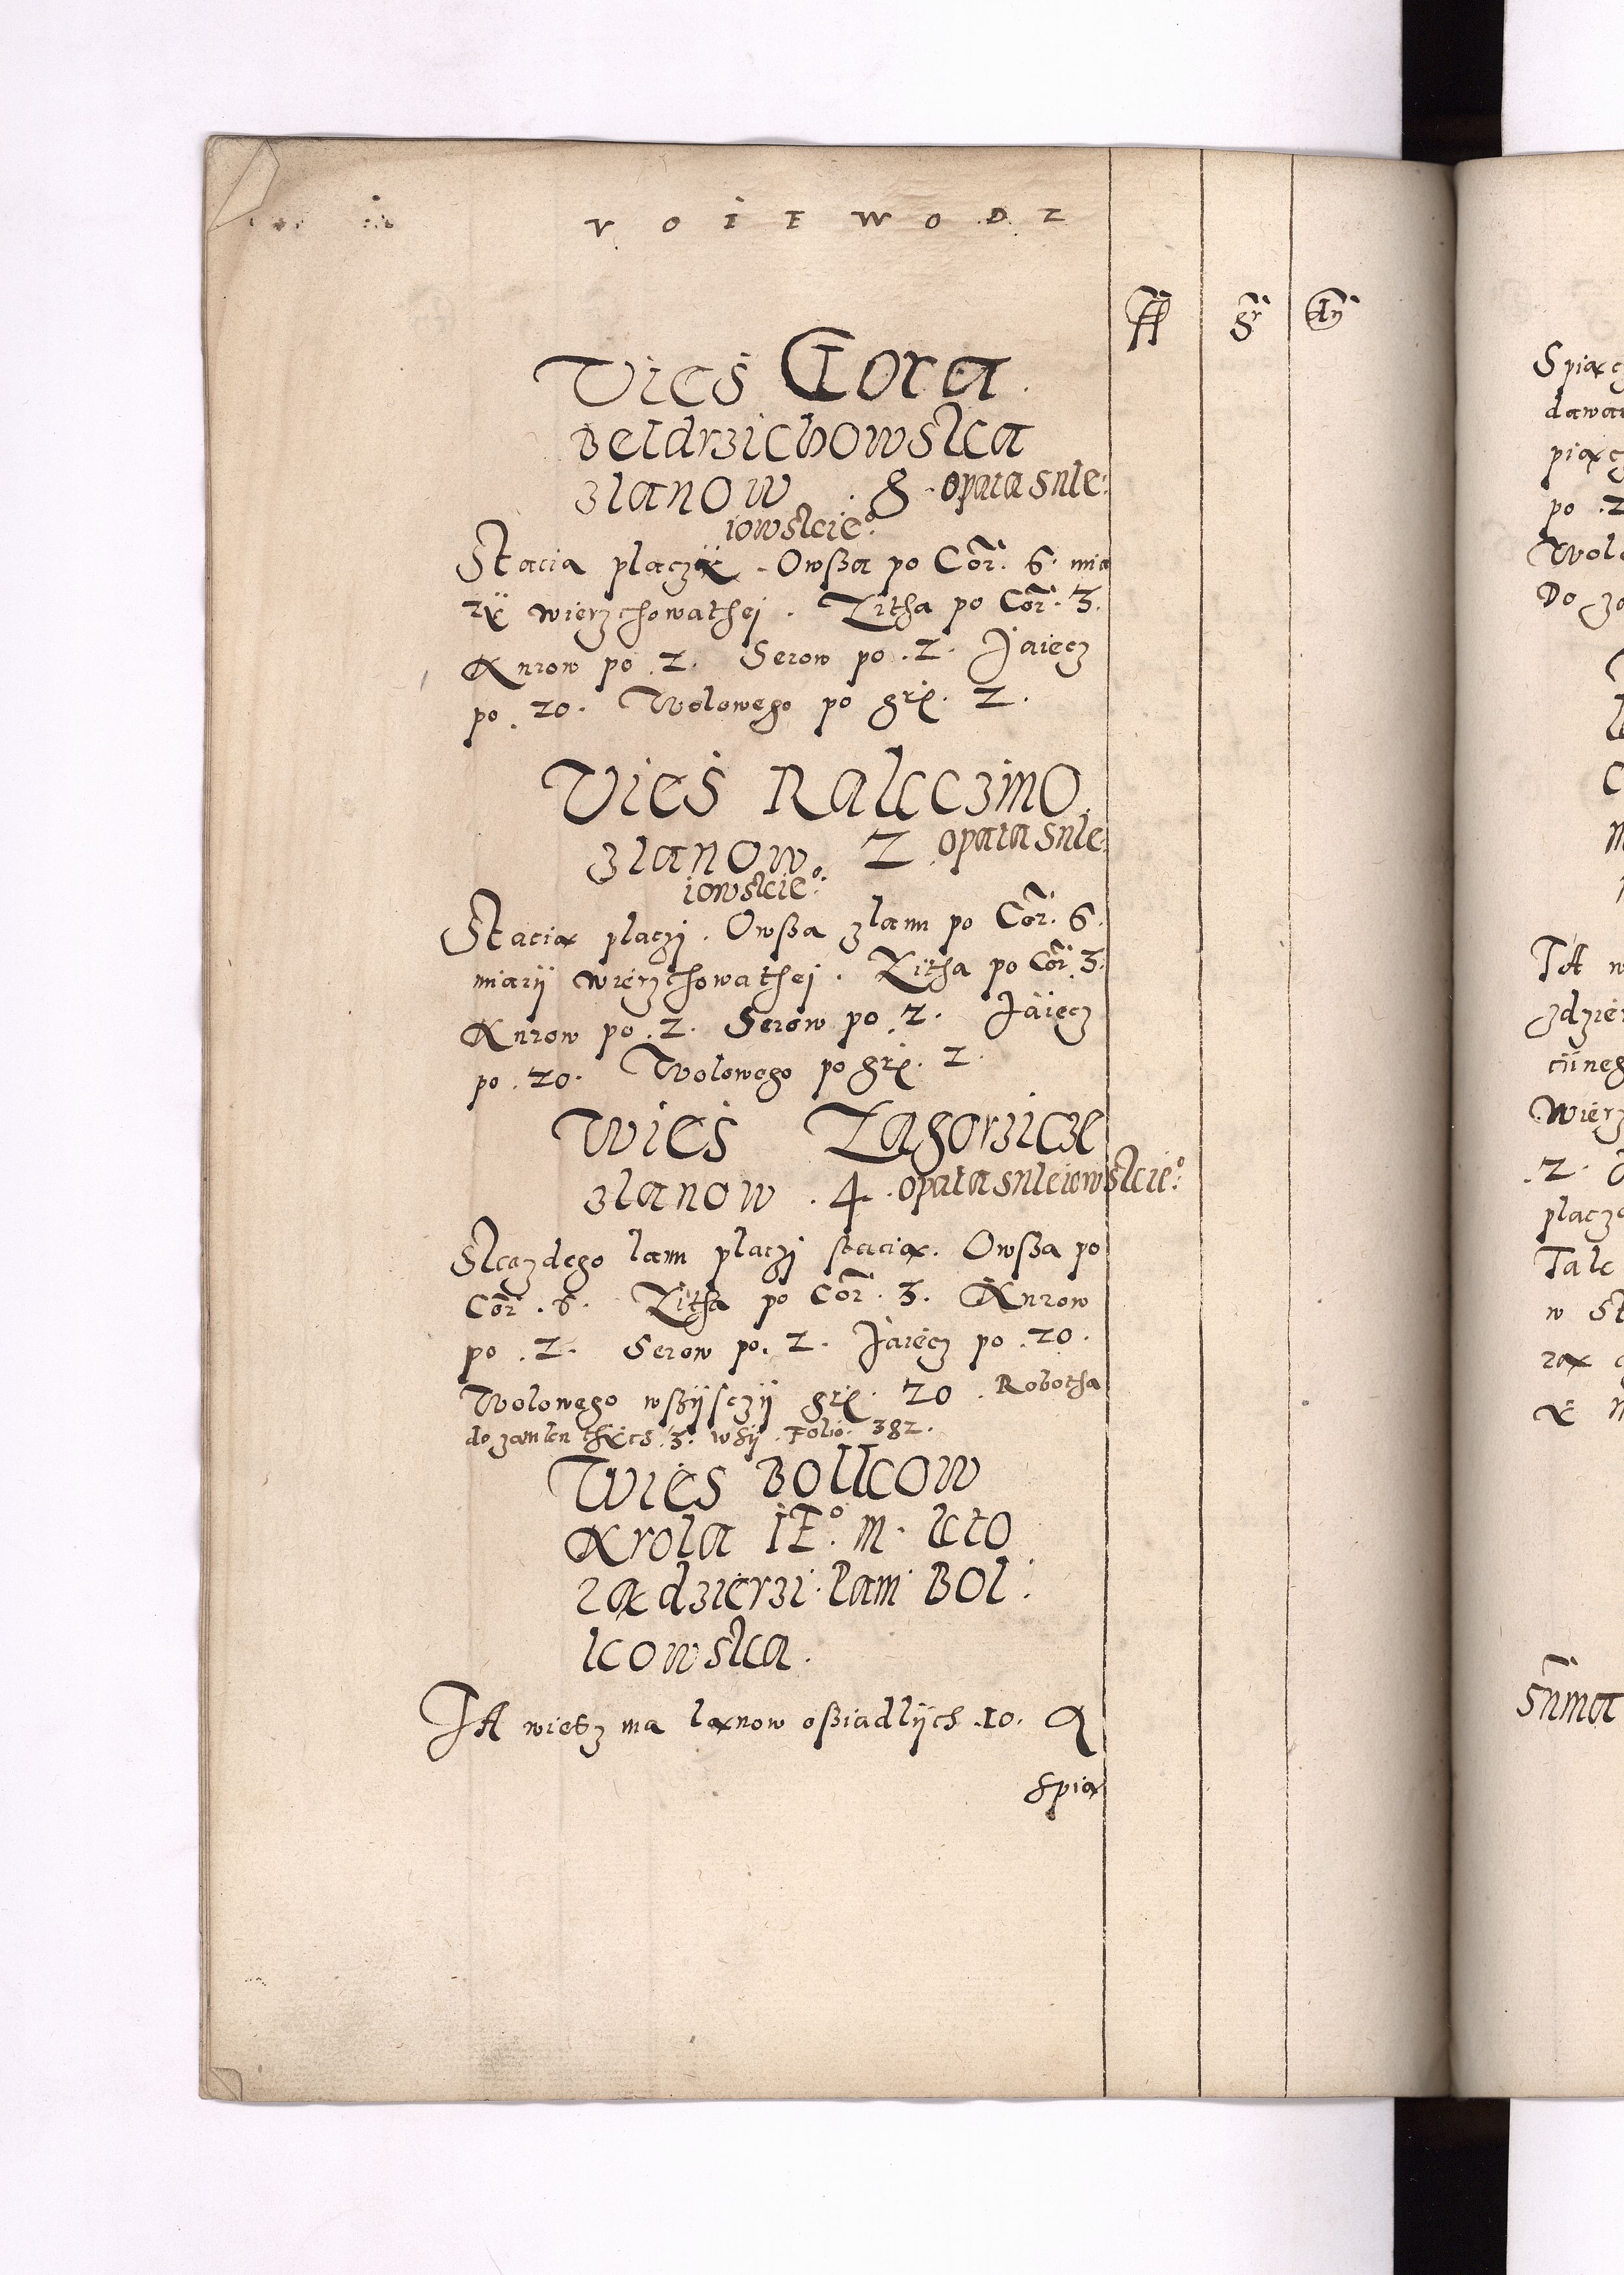 VOIEWODZ
fl gr dn
Vies Gora
Beldrzichowska
zlanow . 8 . opata Sule:
iowskie:
Stacia placzą . Owßa po Cor. 6. mia
rÿ wierzchowathej . Zitha po Cor. 3.
Kurow po .2. Serow po .2. Jaiecz
po . 20. Wolowego po grz. 2.
Vies Rakczino
zlanow . 2 opata Sule
iowskie:
Stacią placzj . Owßa zlanu po Cor. 6.
miarÿ wierzchowathej . Zitha po Cor. 3.
Kurow po .2. Serow po .2. Jaiecz
po . 20. Wolowego po grz. 2.
Wies Zagorzicze
zlanow . 4 . opata suleiowskie:
Skazdego lanu placzj stacią. Owßa po
Cor . 6. Zitha po Cor . 3. Kurow
po . 2. Serow po. 2. Jaiecz po . 20.
Wolowego wßÿsczÿ grz. 20 . Robotha
do zamku thych .3. wsÿ . Folio. 382.
Wies Bolkow
Krola IE° M. kto
rą dzierzi Pani Bol:
kowska.
TA wiesz ma lanow oßiadlÿch .10. A
spią
Spiącz
dawa
piącz
po . 2
Wolo
Do za
TA w
zdzier
cÿneg
Wierz
. 2.
placz
Tak
w St
rą
Suma